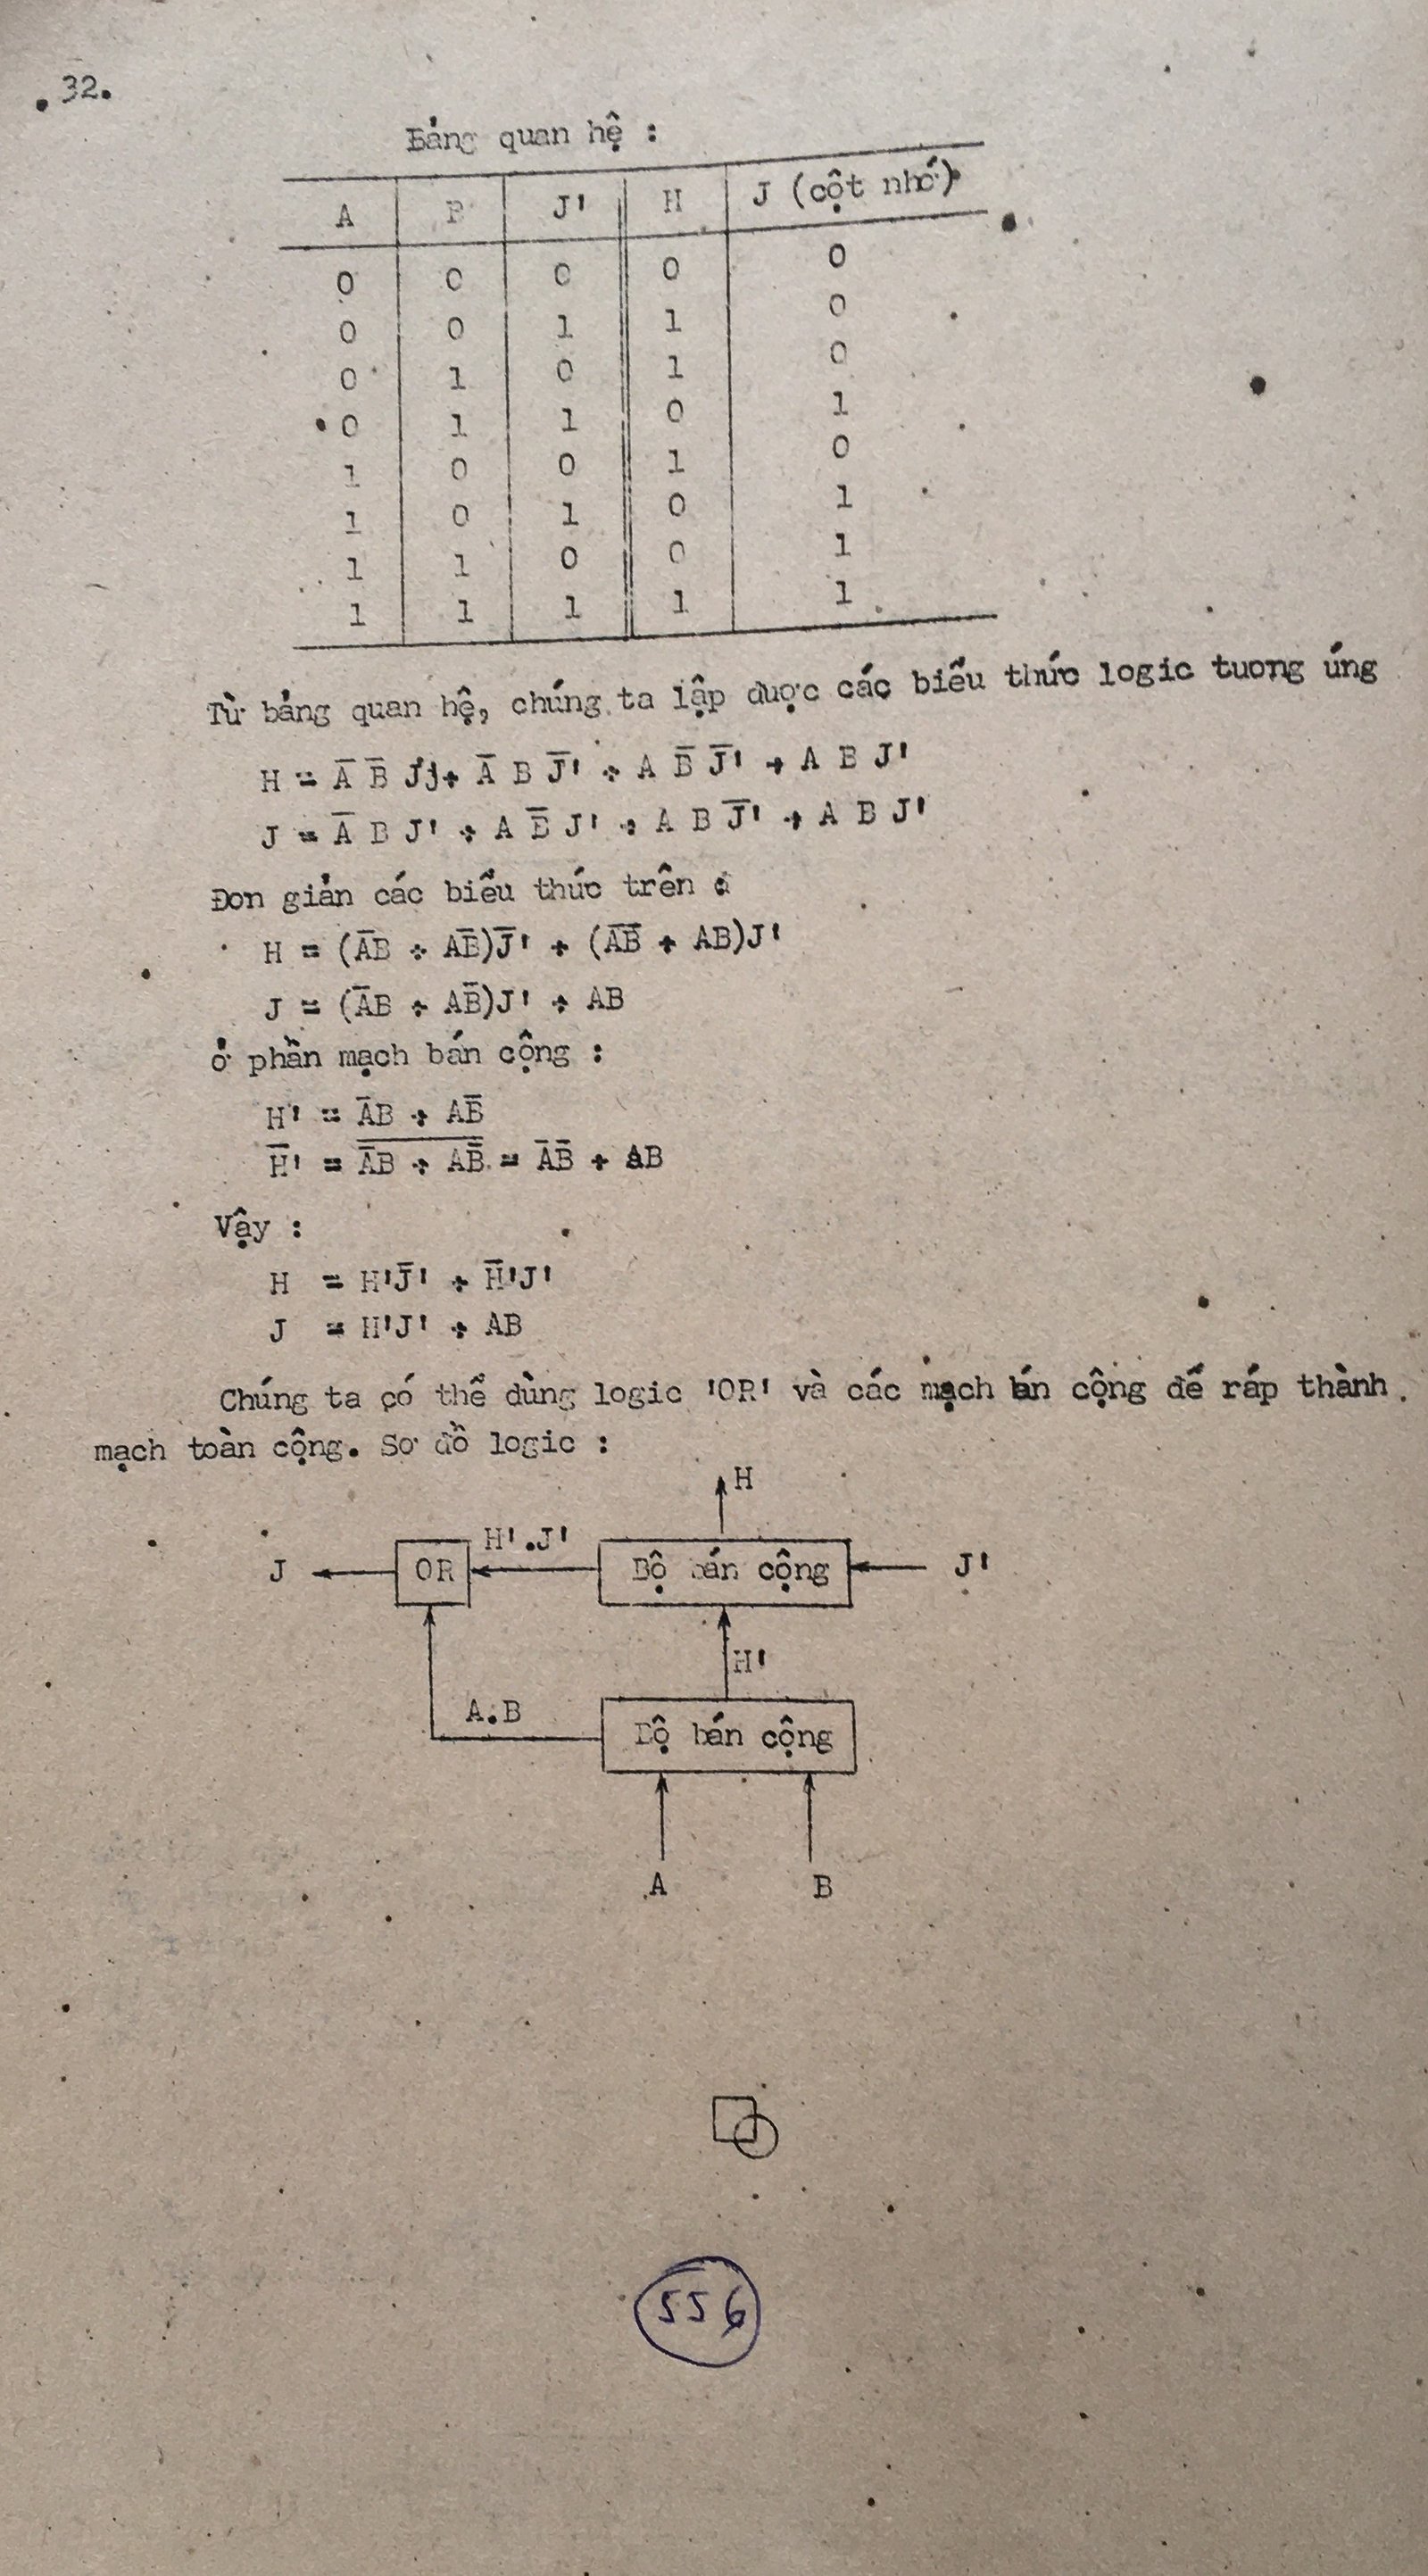 32.
Bảng quan hệ :
A B J' H J (cột nhớ)
0 0 0 0 0
0 0 1 1 0
0 1 0 1 0
0 1 1 0 1
1 0 0 1 0
1 0 1 0 1
1 1 0 0 1
1 1 1 1 1
Từ bảng quan hệ, chúng ta lập được các biểu thức logic tương ứng
H = A̅ B̅ J'j+ A̅ B J̅' + A B̅ J̅' + A B J'
J = A̅ B J' + A B̅ J' + A B J̅' + A B J'
Đơn giản các biểu thức trên :
H = (A̅B + AB̅)J̅' + (A̅B̅ + AB)J'
J = (A̅B + AB̅)J' + AB
ở phần mạch bán cộng :
H' = A̅B + AB̅
H̅' = A̅̅B̅ ̅+̅ ̅A̅B̅̅ = A̅B̅ + AB
Vậy :
H = H'J̅' + H̅'J'
J = H'J' + AB
Chúng ta có thể dùng logic 'OR' và các mạch bán cộng để ráp thành
mạch toàn cộng. Sơ đồ logic :
H
J OR H'.J' Bộ bán cộng J'
H'
A.B Bộ bán cộng
A B
556